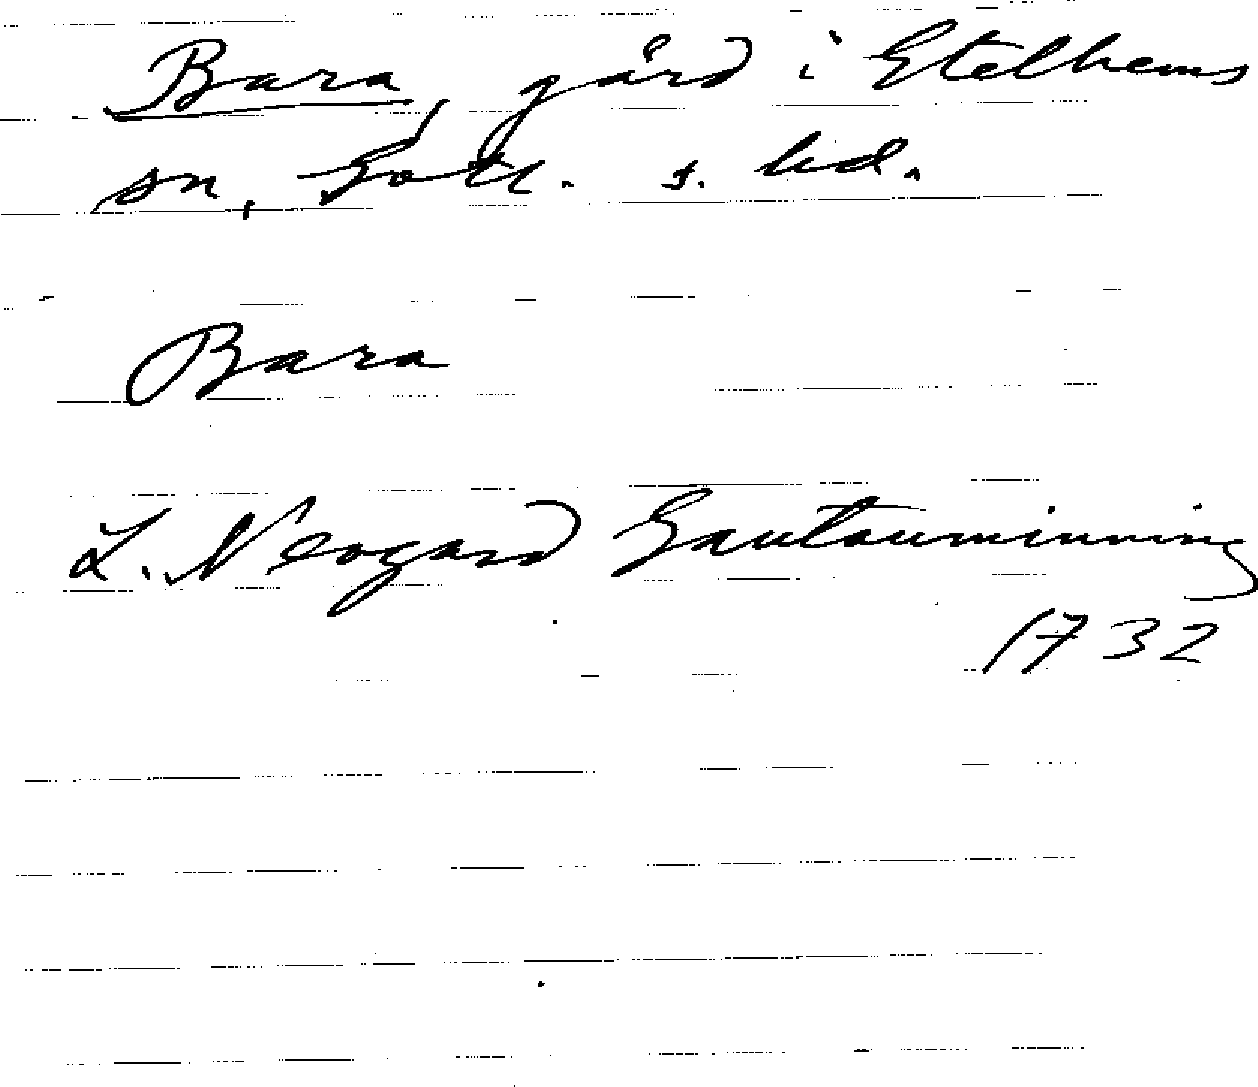 Bara, gård i Etelhems
sn, Gotl. s. hd.
Bara
L. Neogard Gautauminning
1732